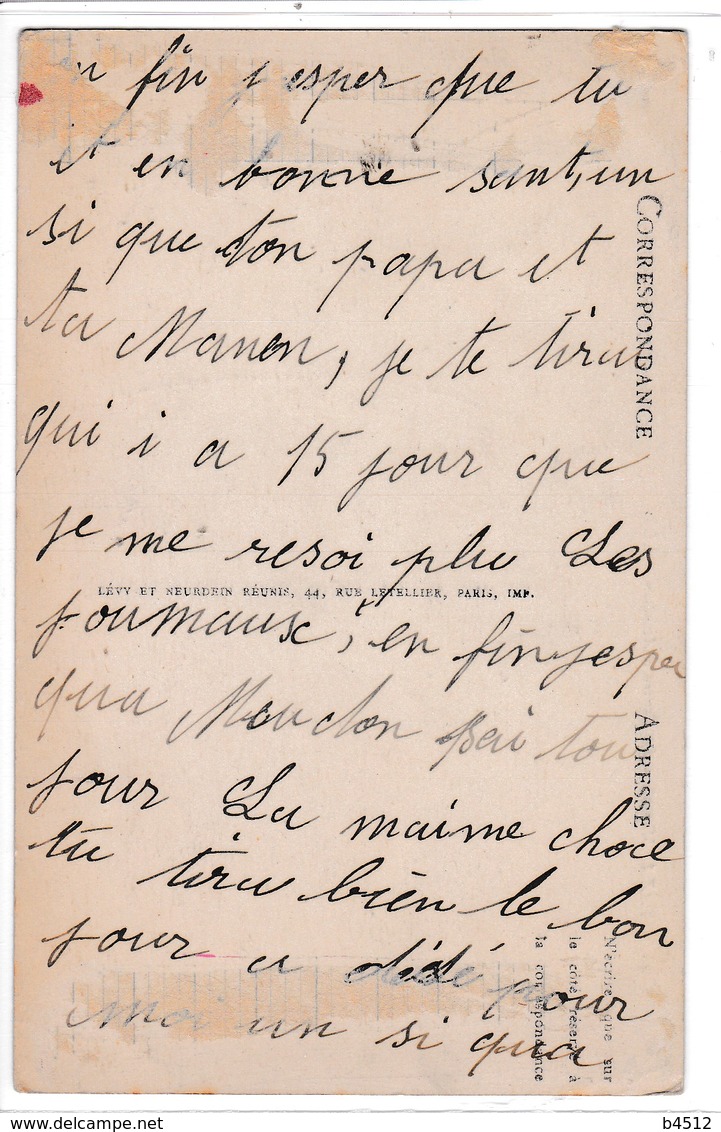 en fin j esper que tu
et en bonne sant, un
si que ton papa et
ta Manon, je te tira
qui i a 15 jour que
je me resoi plu Les
LÉVY ET NEURDEIN RÉUNIS, 44, RUE LETELLIER, PARIS, IMP.
journaux, en fin jesper
qua Meudon sai tou
jour La maime choce
tu tira bien le bon
jour a dédé pour
moi un si qua
CORRESPONDANCE
ADRESSE
N'écrire que sur
le côté réservé à
la correspondance
b4512